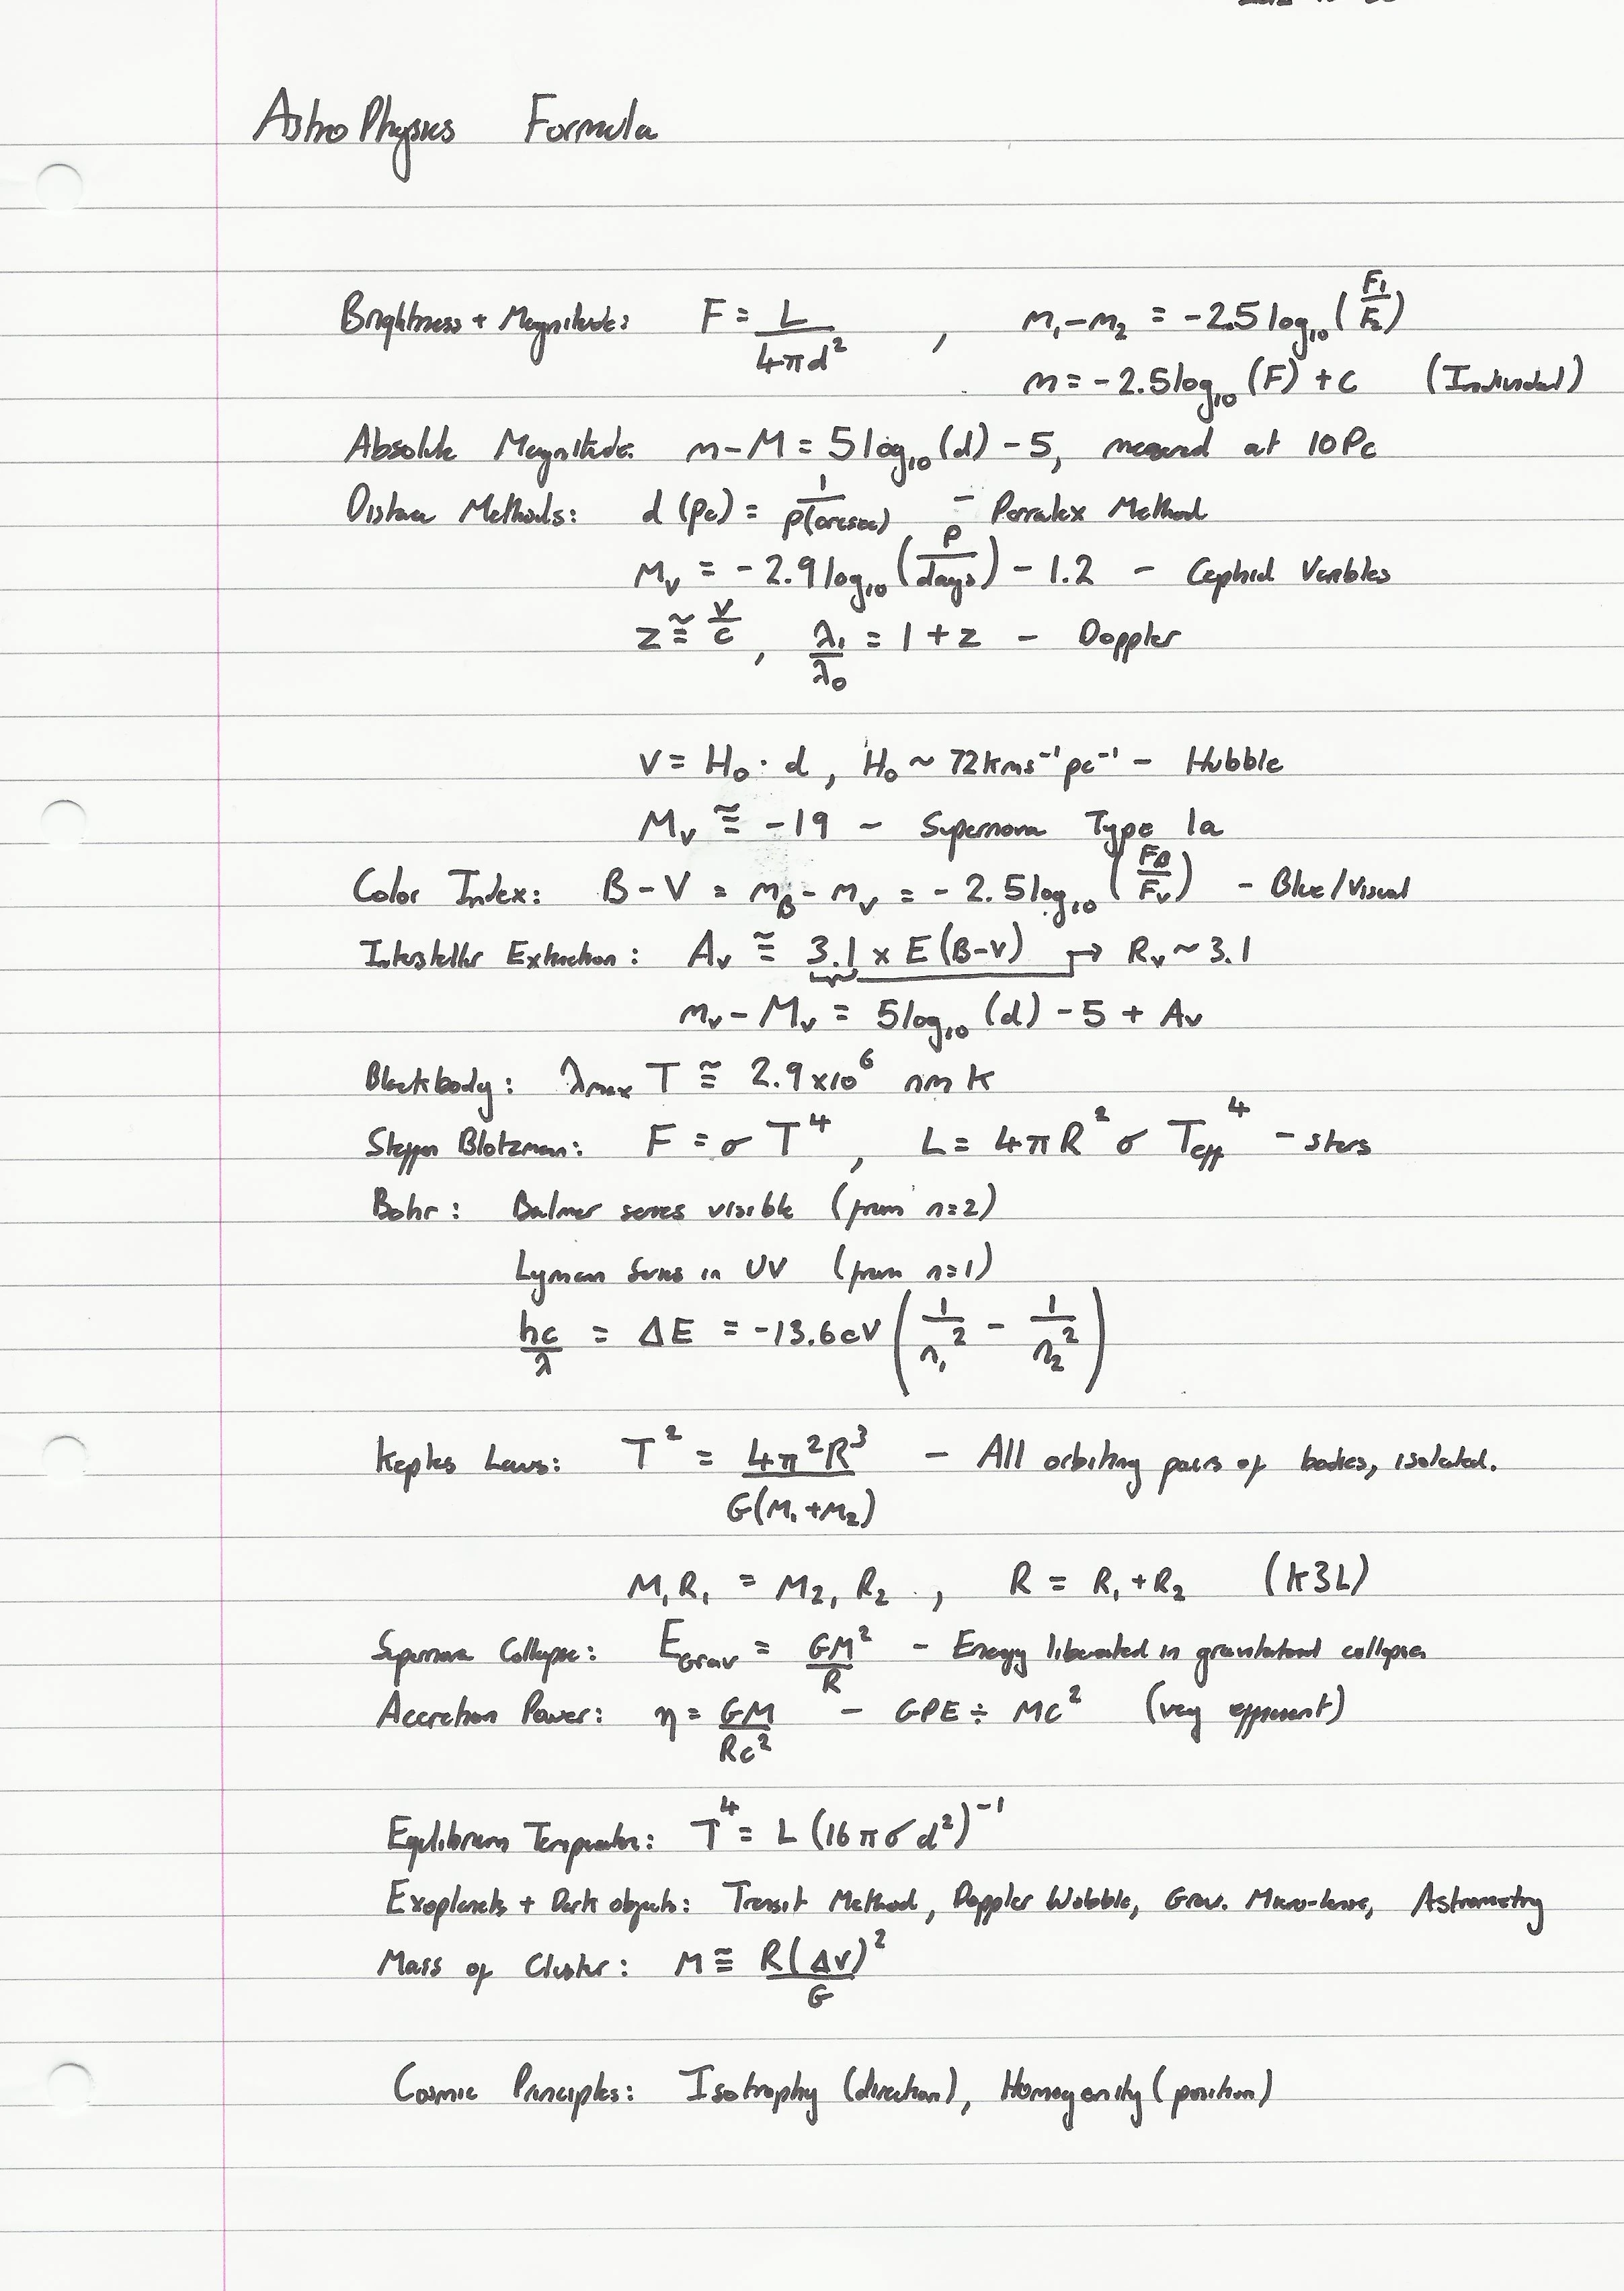 AstroPhysics Formula
Brightness + Magnitude: F = L/4πd² , m₁-m₂ = -2.5log₁₀(F₁/F₂)
m = -2.5log₁₀(F) + c (Individual)
Absolute Magnitude: m-M = 5log₁₀(d) - 5, measured at 10Pc
Distance Methods: d (pc) = 1/p(arcsec) - Parralex Method
Mᵥ = -2.9log₁₀(P/days) - 1.2 - Cephid Variables
z ≅ v/c , λ₁/λ₀ = 1 + z - Doppler
v = H₀ · d , H₀ ~ 72kms⁻¹pc⁻¹ - Hubble
Mᵥ ≅ -19 - Supernova Type 1a
Color Index: B - V = m_B - mᵥ = -2.5log₁₀(F_B/Fᵥ) - Blue/Visual
Interstellar Extinction: Aᵥ ≅ 3.1 x E(B-V) → Rᵥ ~ 3.1
mᵥ - Mᵥ = 5log₁₀(d) - 5 + Aᵥ
Blackbody: λmax T ≅ 2.9x10⁶ nm K
Blotzman: F = σT⁴ , L = 4πR²σTeff⁴ - stars
Bohr: Balmer series visible (from n=2)
Lyman Series in UV (from n=1)
hc/λ = ΔE = -13.6eV(1/n₁² - 1/n₂²)
Keplers Laws: T² = 4π²R³/G(M₁+M₂) - All orbiting pairs of bodies, isolated.
M₁R₁ = M₂, R₂ , R = R₁+R₂ (K3L)
Supernova Collapse: E_Grav = GM²/R - Energy liberated in gravitational collapse
Accretion Power: η = GM/Rc² - GPE ÷ MC² (very efficient)
Equilibrium Temperature: T⁴ = L(16πσd²)⁻¹
Exoplanets + Dark objects: Transit Method, Doppler Wobble, Grav. Micro-lense, Astrometry
Mass of Cluster: M ≅ R(Δv)²/G
Cosmic Principles: Isotrophy (direction), Homogenity (position)